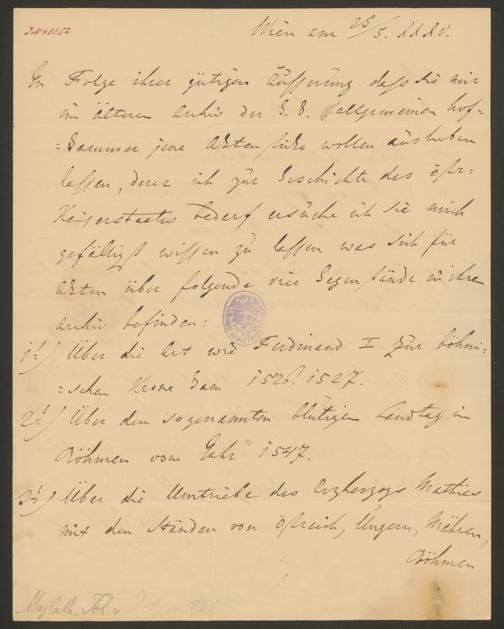 Wien am 25/5. XXXV.
In Folge ihrer gütigen Äusserung dass Sie mir
im ältern Archiv der K. K. allgemeinen Hof-
=kammer jene Aktenstüke wollen ausheben
lassen, derer ich zur Geschichte des östr:
Keiserstaates bedarf ersuche ich Sie mich
gefälligst wissen zu lassen was sich für
Akten über folgende vier Gegenstände in ihrem
Archiv befinden:
1.) Über die Art wie Ferdinand I zur böhmi-
=schen Krone kam 1526. 1527.
2.) Über den sogenannten blutigen Landtag in
Böhmen vom Jahr 1547.
3.) Über die Umtriebe des Erzherzogs Mathias
mit den Ständen von Östreich, Ungern, Mähren,
Böhmen
Majlath, Joh. v.